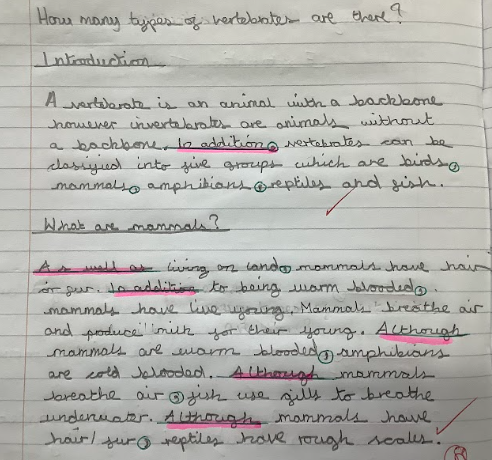 How many types of vertebrates are there?
Introduction
A vertebrate is an animal with a backbone
however invertebrates are animals without
a backbone. In addition, vertebrates can be
classified into five groups which are birds,
mammals, amphibians, reptiles and fish.
What are mammals?
As well as living on land, mammals have hair
or fur. In addition to being warm blooded,
mammals have live young. Mammals breathe air
and produce milk for their young. Although
mammals are warm blooded, amphibians
are cold blooded. Although mammals
breathe air, fish use gills to breathe
underwater. Although mammals have
hair/fur, reptiles have rough scales.